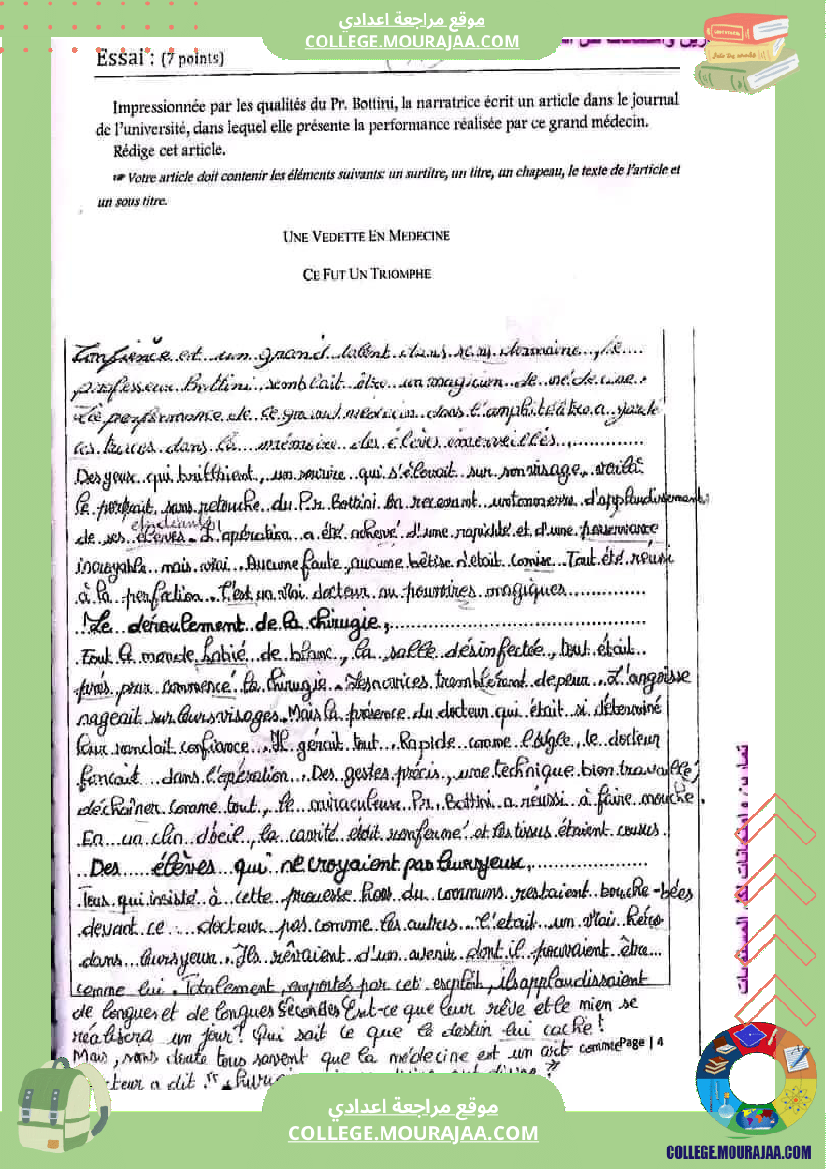 موقع مراجعة اعدادي
COLLEGE.MOURAJAA.COM
Essai : (7 points)
Impressionnée par les qualités du Pr. Bottini, la narratrice écrit un article dans le journal
de l'université, dans lequel elle présente la performance réalisée par ce grand médecin.
Rédige cet article.
☞ Votre article doit contenir les éléments suivants: un surtitre, un titre, un chapeau, le texte de l'article et
un sous titre.
UNE VEDETTE EN MEDECINE
CE FUT UN TRIOMPHE
est un grand talent dans son domaine, le
professeur Bottini semblait être un magicien de médecine.
La performance de ce grand médecin dans l'amphithéâtre a gardé
les traces dans la mémoire des élèves émerveillés
Des yeux qui brillaient, un sourire qui s'élevait sur son visage, voilà
le portrait sans retouche du Pr. Bottini en recevant un tonnerre d'applaudissements
étudiants
de ses élèves. L'opération a été achevé d'une rapidité et d'une
incroyable mais vrai. Aucune faute, aucune bêtise n'était comise. Tout été réussi
à la perfection. C'est un vrai docteur au pouvoires magiques
Le déroulement de la chirugie,
Tout le monde habié de blanc, la salle désinfectée, tout était
près pour commencé la chirugie. Les novices tremblèrent de peur. L'angoisse
nageait sur leurs visages. Mais la présence du docteur qui était si déterminé
leur rendait confiance. Il gérait tout. Rapide comme l'aigle, le docteur
fonçait dans l'opération. Des gestes précis, une technique bien travaillé,
déchaîner comme tout, le miraculeux Pr. Bottini a réussi à faire mouche.
En un clin d'œil, la cavité était renfermé et les tissus étaient cousus.
Des élèves qui ne croyaient pas leurs yeux,
Tous qui insisté à cette prouesse hors du communs restaient bouche-bées
devant ce docteur pas comme les autres. C'était un vrai héro
dans leurs yeux. Ils rêvaient d'un avenir dont il pouvaient être
comme lui. Totalement emportés par cet exploit, ils applaudissaient
de longues et de longues secondes. Est-ce que leur rêve et le mien se
réalisera un jour? Qui sait ce que le destin lui cache!
Mais, sans doute tous savent que la médecine est un art comme
Page | 4
a dit
موقع مراجعة اعدادي
COLLEGE.MOURAJAA.COM
COLLEGE.MOURAJAA.COM